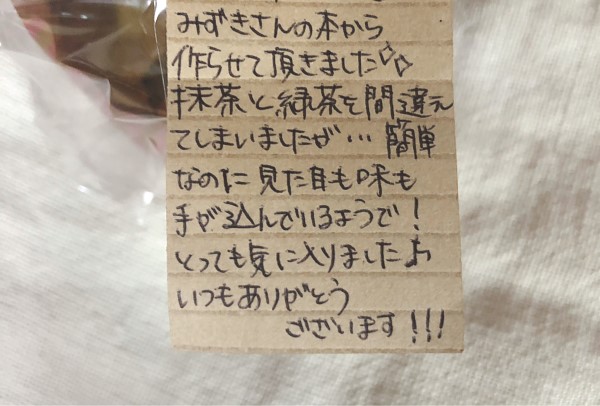 みずきさんの本から
作らせて頂きました☆☆
抹茶と緑茶を間違え
てしまいましたが…簡単
なのに見た目も味も
手が込んでいるようで!
とっても気に入りました♪
いつもありがとう
ございます!!!